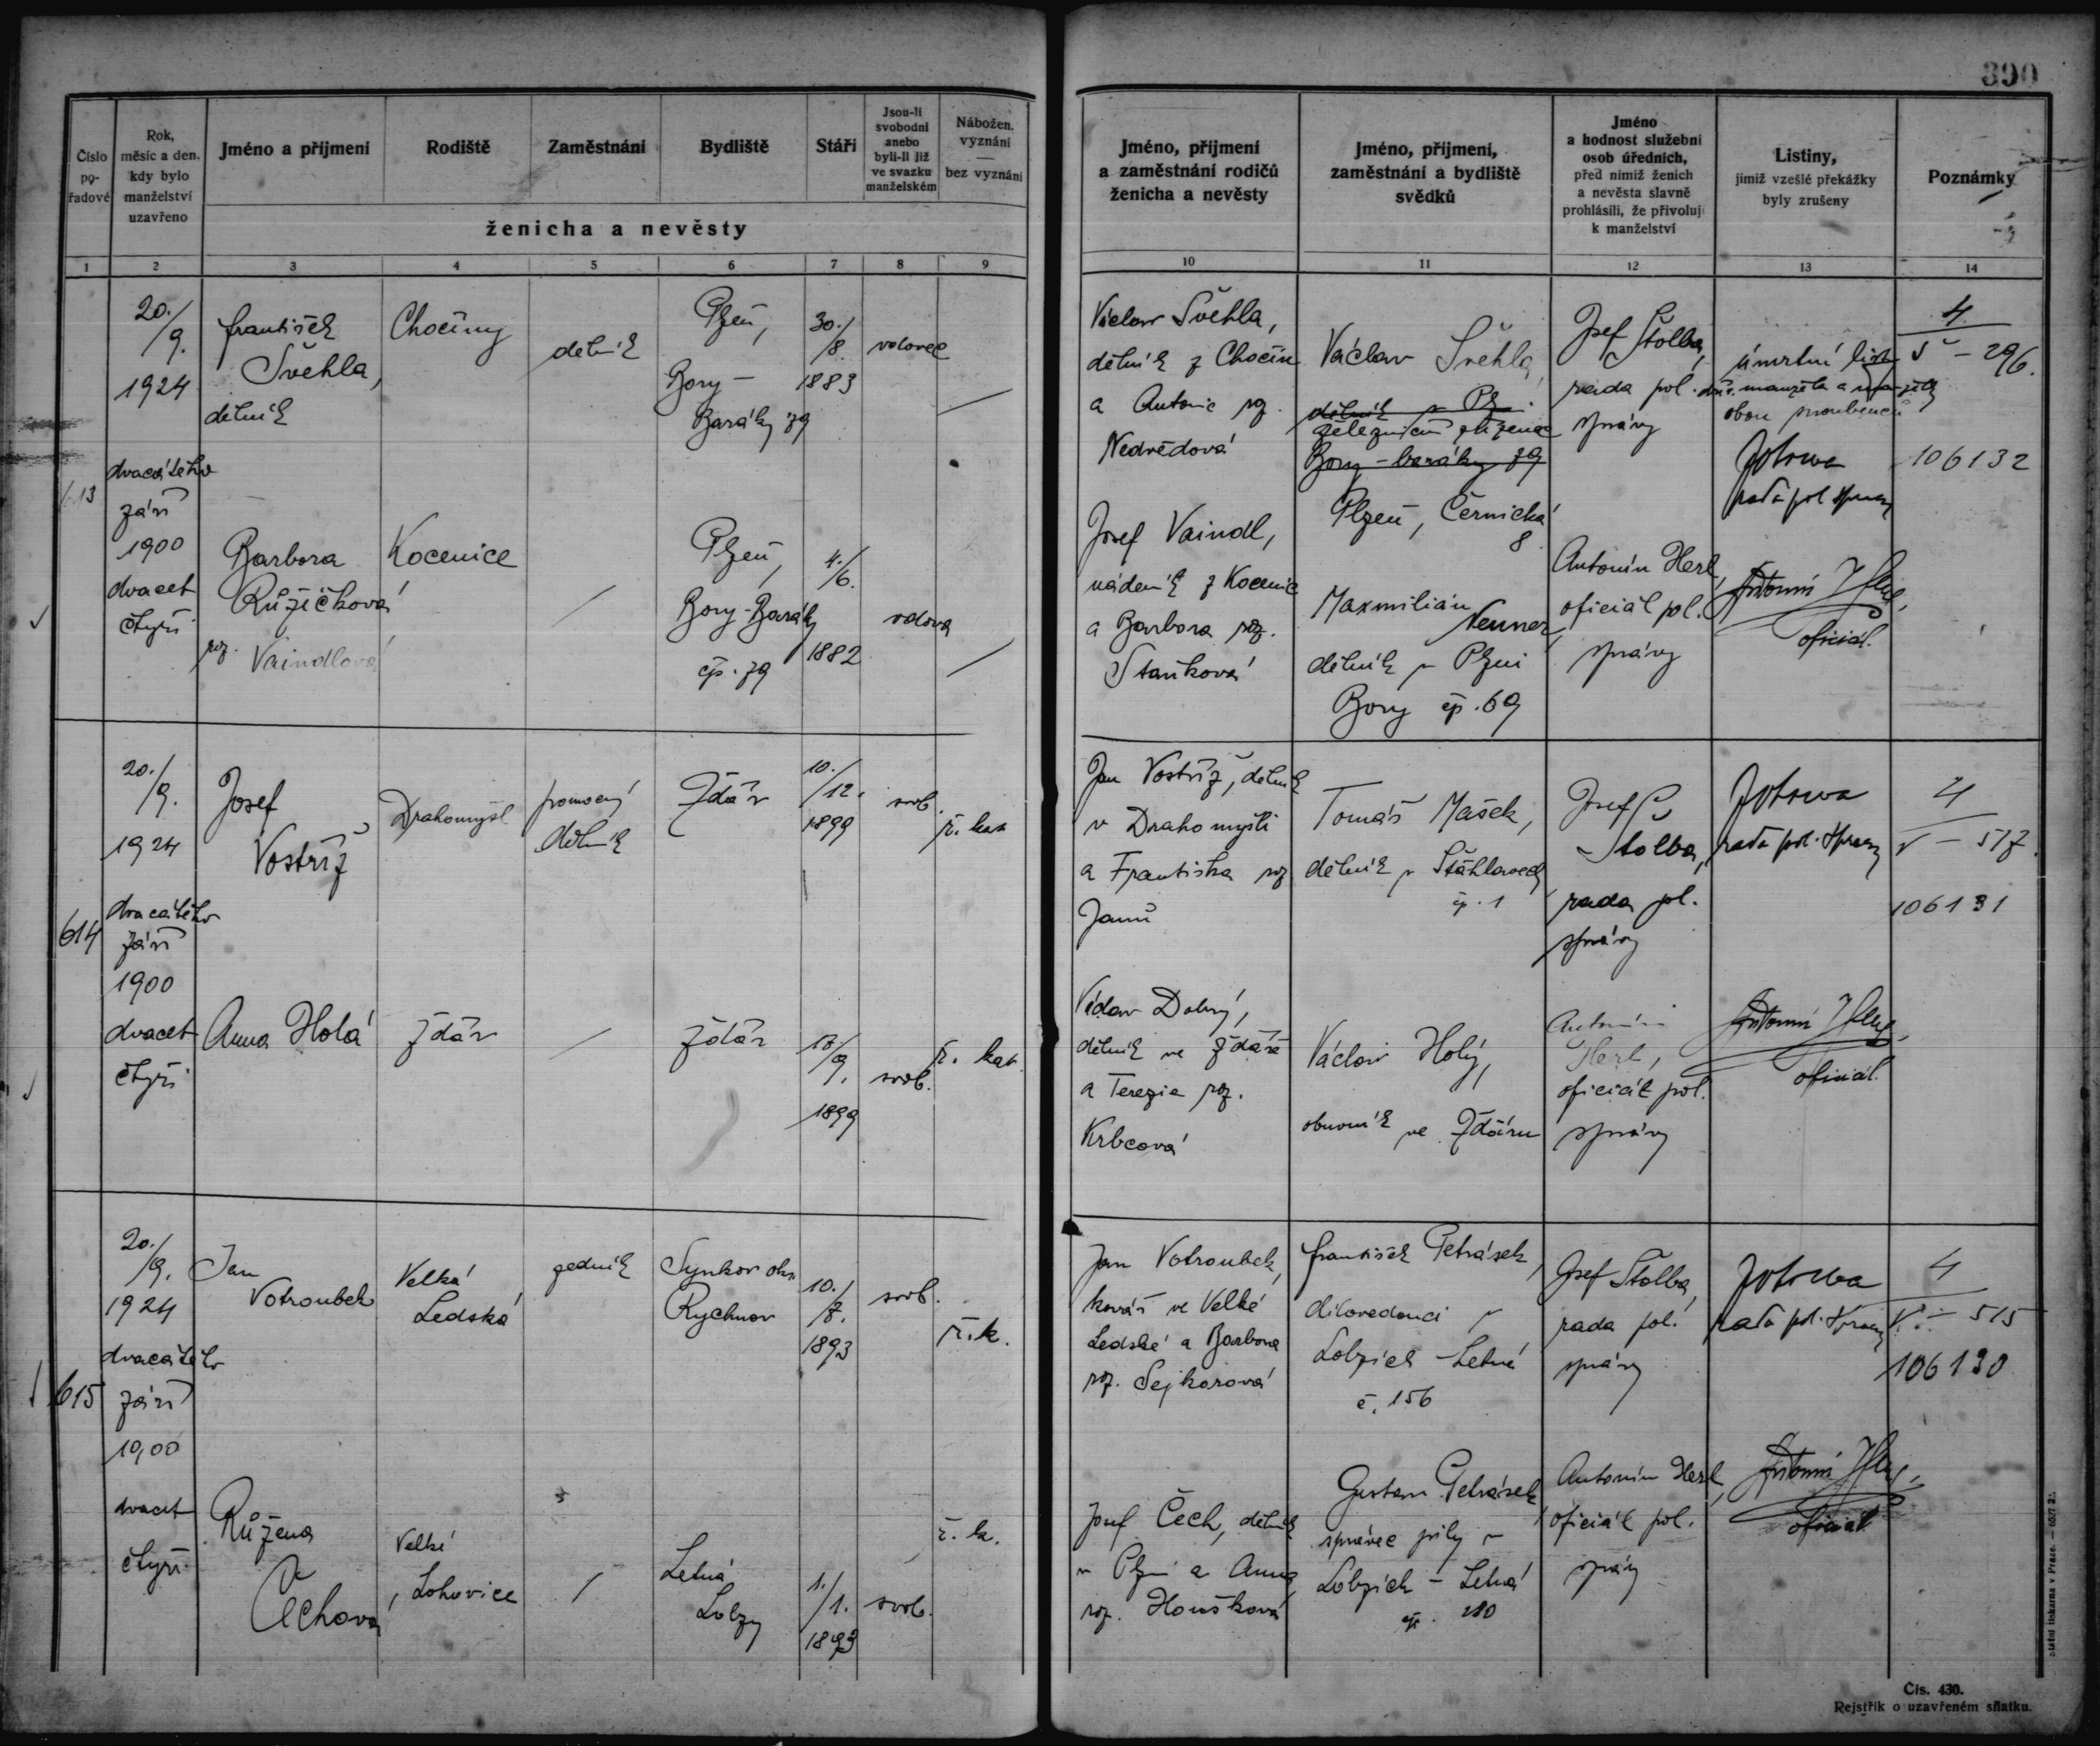 390
Číslo pořadové
Rok, měsíc a den, kdy bylo manželství uzavřeno
Jméno a příjmení
Rodiště
Zaměstnání
Bydliště
Stáří
Jsou-li svobodni anebo byli-li již ve svazku manželském
Nábožen. vyznání — bez vyznání
ženicha a nevěsty
Jméno, příjmení a zaměstnání rodičů ženicha a nevěsty
Jméno, příjmení, zaměstnání a bydliště svědků
Jméno a hodnost služební osob úředních, před nimiž ženich a nevěsta slavně prohlásili, že přivolují k manželství
Listiny, jimiž vzešlé překážky byly zrušeny
Poznámky
1 2 3 4 5 6 7 8 9 10 11 12 13 14
613
20./9.
1924
dvacátého
září
1900
dvacet
čtyři
František
Švehla,
dělník
Chočiny
dělník
Plzeň,
Bory –
Baráky 79
30./8.
1883
vdovec
Václav Švehla,
dělník z Chočin
a Antonie roz.
Nedvědová
Václav Švehla,
dělník v Plz.
železniční zřízenec
Bory – baráky 79
Plzeň, Černická
8
Josef Štolba,
rada pol.
správy
úmrtní listy
obou snoubenců
rada pol. správy
4
V – 296.
106132
Barbora
Růžičková
roz. Vaindlová
Kocenice
/
Plzeň,
Bory-Baráky
čp. 79
4./6.
1882
vdova
Josef Vaindl,
nádeník z Kocenic
a Barbora roz.
Staňková
Maxmilián
Nenner,
dělník v Plzni
Bory čp. 69
Antonín Herl,
oficiál pol.
správy
oficiál.
614
20./9.
1924
dvacátého
září
1900
dvacet
čtyři
Josef
Vostříž
Drahomyšl
pomocný
dělník
Ždár
10./12.
1899
svob.
ř. kat
Jan Vostříž, dělník
v Drahomyšli
a Františka roz
Janů
Tomáš Mašek,
dělník v Šťáhlavech
čp. 1
Josef
Štolba,
rada pol.
správy
rada pol. správy
4
V – 517.
106131
Anna Holá
Ždár
/
Ždár
17./9.
1899
svob.
ř. kat.
dělník ve Ždáře
a Terezie roz.
Krbcová
Václav Holý,
obuvník ve Ždáru
Antonín
Herl,
oficiál pol.
správy
oficiál.
615
20./9.
1924
dvacátého
září
19,00
dvacet
čtyři
Jan
Votroubek
Velká
Ledská
zedník
Synkov okr.
Rychnov
10./7.
1893
svob.
ř. k.
Jan Votroubek,
kovář ve Velké
Ledské a Barbora
roz. Sejkorová
František Petrásek,
dílovedoucí v
Lobzích – Letná
č. 156
Josef Štolba,
rada pol.
správy
rada pol. správy
4
V. – 515
106130
Růžena
Čechová
Velké
Lohovice
/
Letná
Lobzy
1./1.
1893
svob.
ř. k.
Josef Čech, dělník
v Plzni a Anna
roz. Houšková
Gustav Petrásek
správce pily v
Lobzích – Letná
čp. 210
Antonín Herl,
oficiál pol.
správy
oficiál
Čís. 430.
Rejstřík o uzavřeném sňatku.